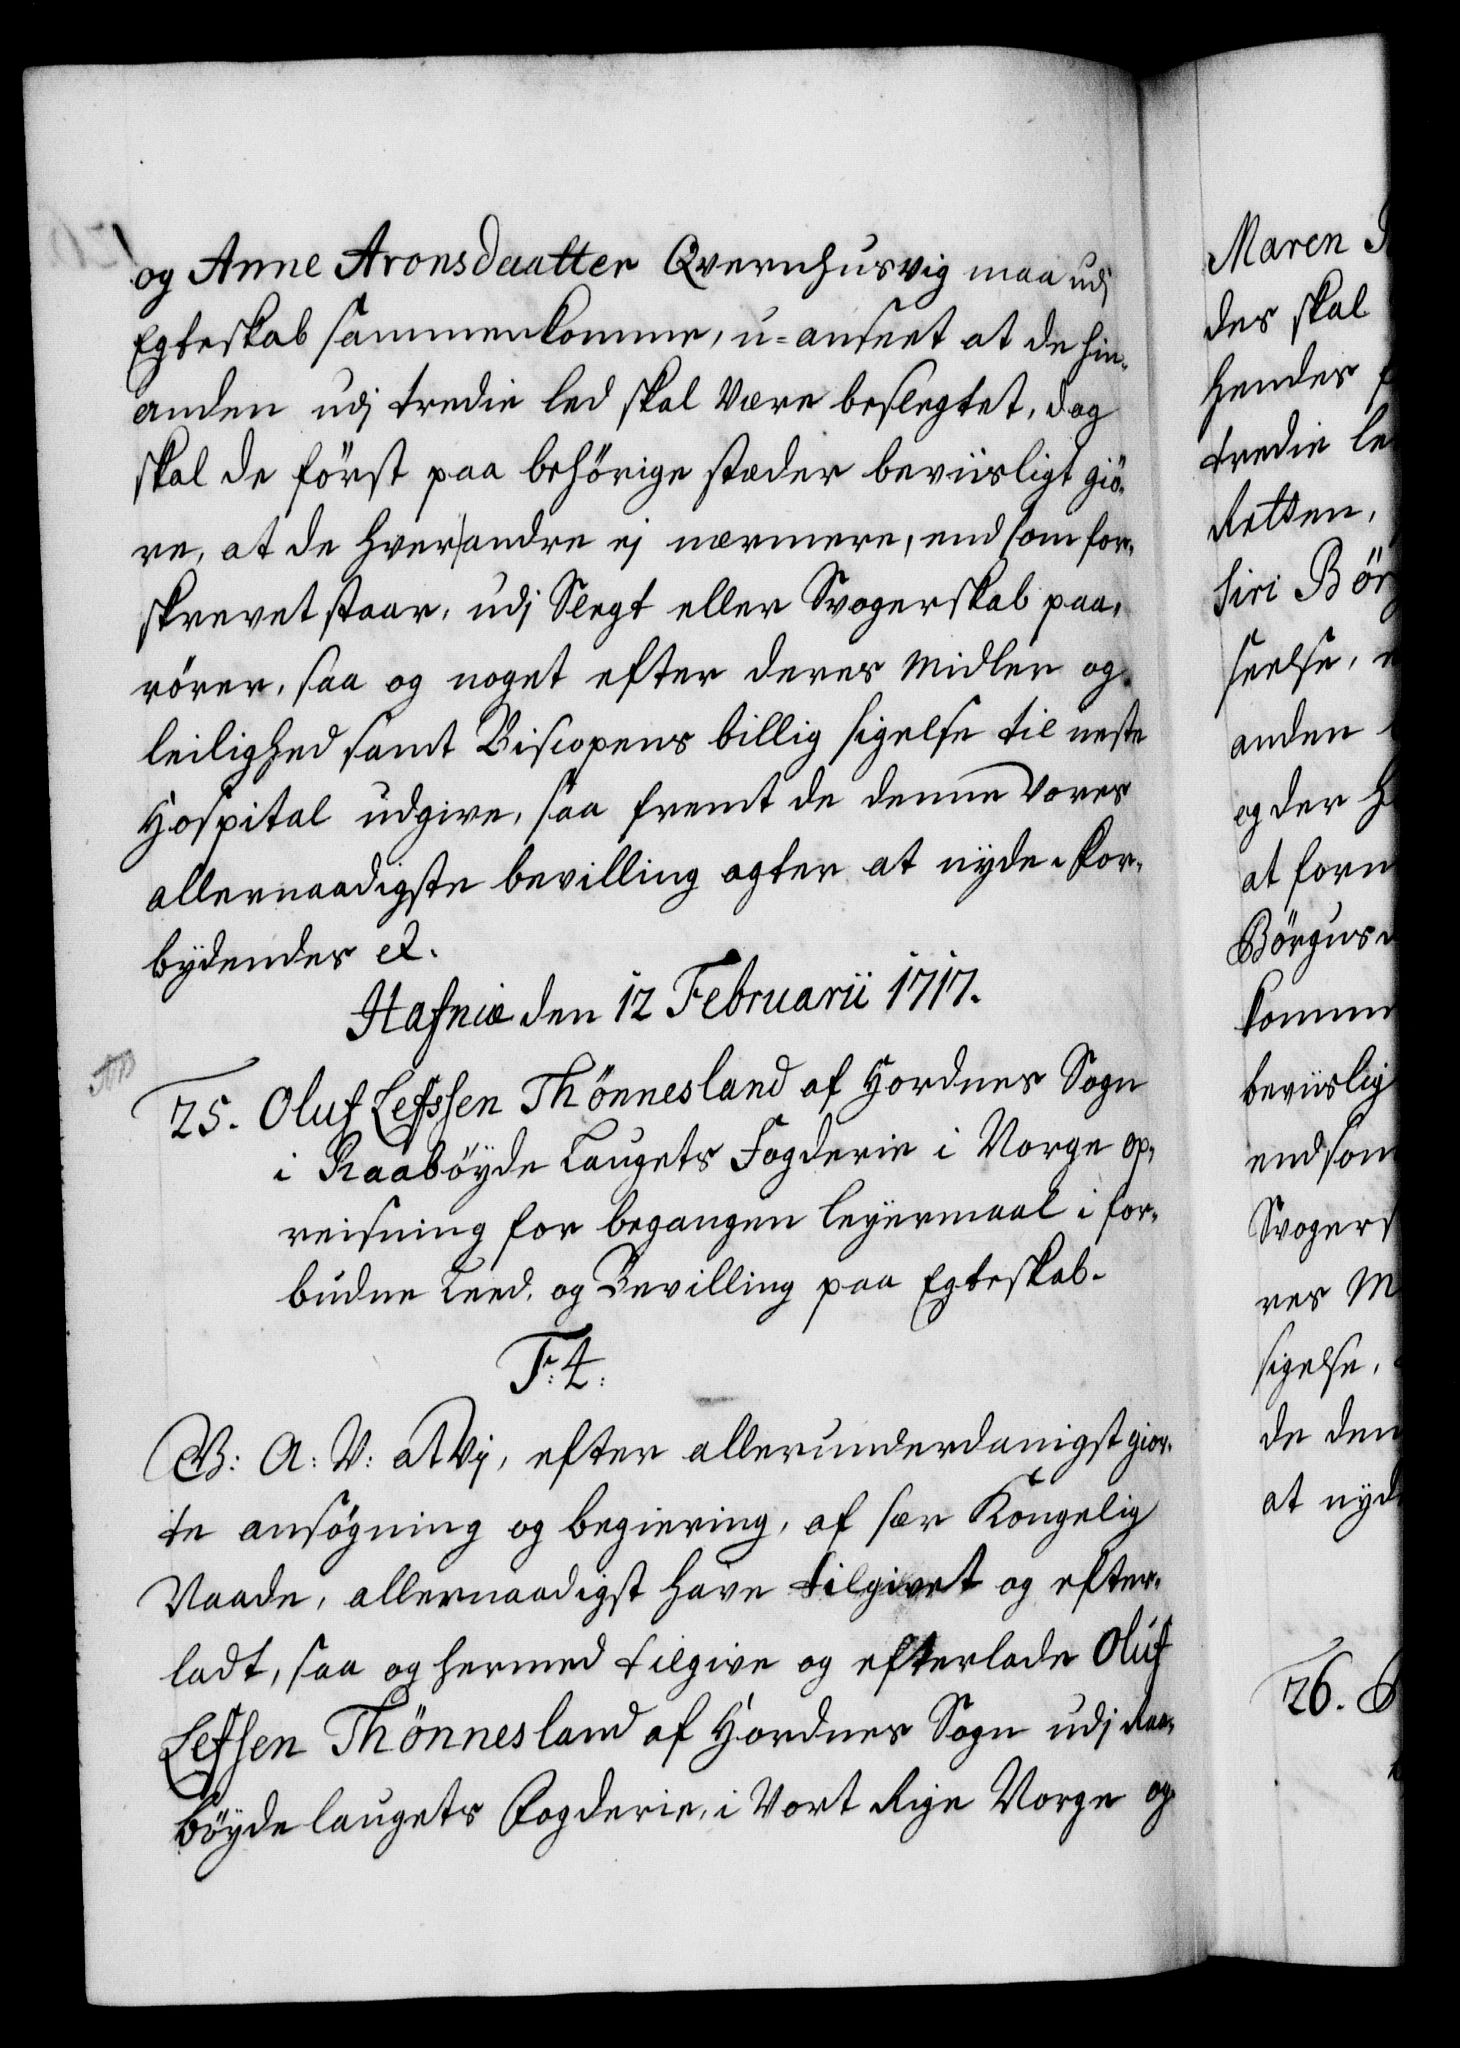 og Anne Aronsdaatter Qvernhusvig maa udj
Egteskab sammenkomme, u=anseet at de hin-
anden udj tredie led skal Være beslegtet, dog
skal de först paa behörige stæder beviisligt giö-
re, at de hverandre ej nærmere, end som for-
skrevet staar, udj Slegt eller Svogerskab paa-
rörer, saa og noget efter deres Midler og
leilighed samt Biscopens billig sigelse til neste
Hospital udgive, saa fremt de denne Vores
allernaadigste bevilling agter at nyde. For-
bydendes et.
Hafniæ den 12 Februarii 1717.
25. Oluf Lefssen Thönnesland af Hordnes Sogn
i Raaböyde Laugets Fogderie i Norge op-
reisning for begangen leyermaal i for-
budne Leed, og Bevilling paa Egteskab.
F: 4:
V: A: V: at Vj, efter allerunderdanigst gior-
te ansøgning og begiering, af sær Kongelig
Naade, allernaadigst have tilgivet og efter-
ladt, saa og hermed tilgive og efterlade Oluf
Lefsen Thönnesland af Hordnes Sogn udj Raa-
böyde laugets Fogderie, i Vort Rige Norge og
Maren
des skal
hendes
tredie le
Retten,
Siri Börg
seelse,
anden
og der
at forn
Börgus
komme
beviislig
end som
Svogers
res M
sigelse,
de den
at nyd
26.